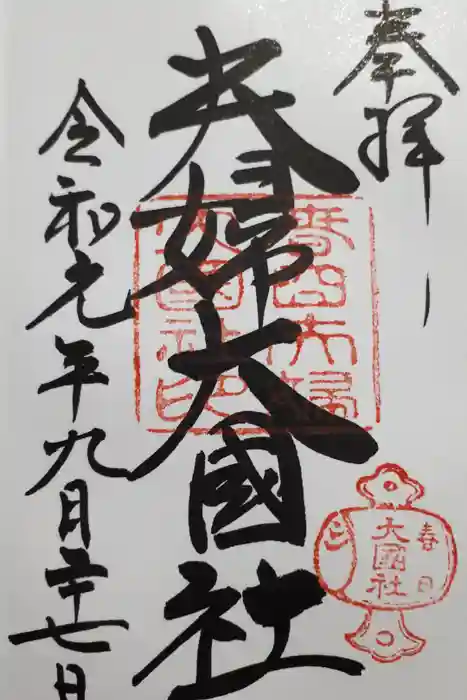 奉拝
夫婦大國社
令和元年九月二十七日
春日夫婦
大国社印
春日
大國社